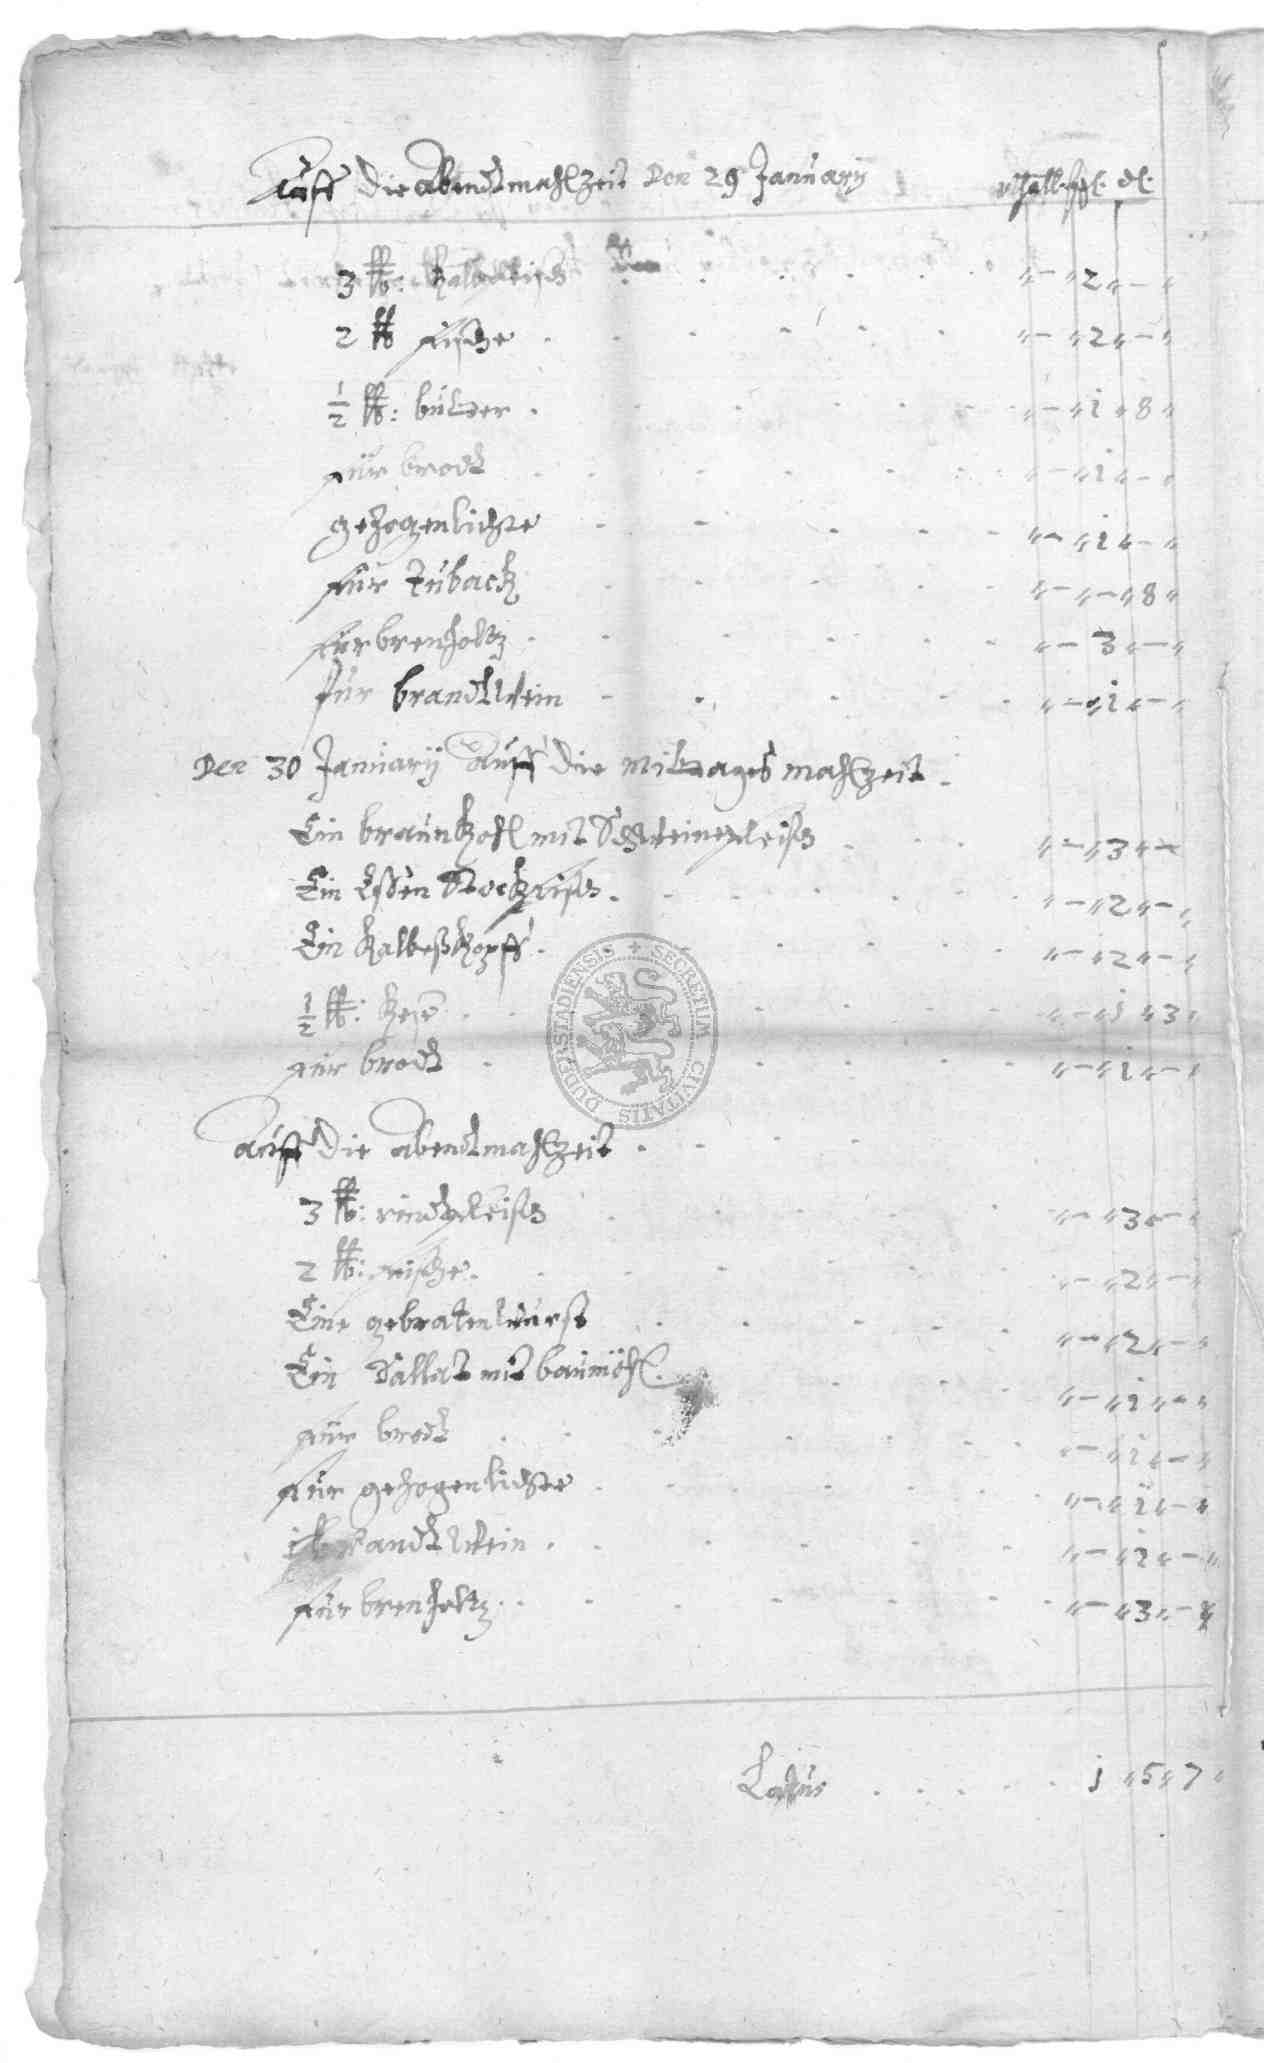 Auff die abendtmahlzeit Den 29 January thall. ßl. dl.
3 lb: Kalbfleisch "– "2"– "
2 lb fische "– "2"– "
1/2 lb: butter "– "1"8"
für brodt "– "1"– "
gezogen lichte "– "1"– "
für Tuback "– "– "8"
für brenholtz "– 3"– "
für brandtwein "– "1"– "
Den 30 January auff die Mittages mahlzeit
Ein braunkohl mit Schweinefleisch "– "3"–
Ein Essen Stockfisch "– "2"– "
Ein Kalbeßkopff "– "2"– "
1/2 lb: Kese "– "1"3"
für brodt "– "1"– "
Auff die abendtmahlzeit
3 lb: rindtfleisch "– "3"– "
2 lb: fische "– "2"– "
Eine gebratenwurst "– "2"– "
Ein Sallat mit baumöhl "– "1"– "
für brodt "– "1"– "
für gezogen lichte "– "1"– "
brandtwein "– "1"– "
für brenholtz "– "3"– "
Latus 1 "5"7"
SECRETUM CIVITATIS DUDERSTADIENSIS